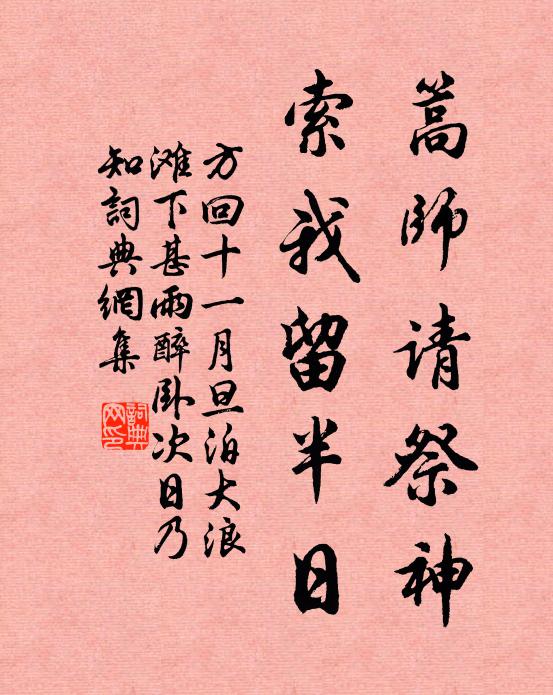 篙师请祭神
索我留半日
方回十一月旦泊大浪
滩下甚雨醉卧次日乃
知詞典網集
詞典網印